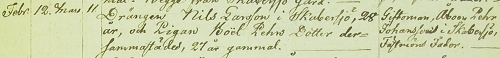 Febr. 12. Mars. 11 Drängen Nils Larsson i Skabersjö, 28 Giftoman, Åboen Pehr
år, och Pigan Boel Pehrs Dotter der- Johansson i Skabersjö,
sammastädes, 27 år gammal. Fästmöns Fader.